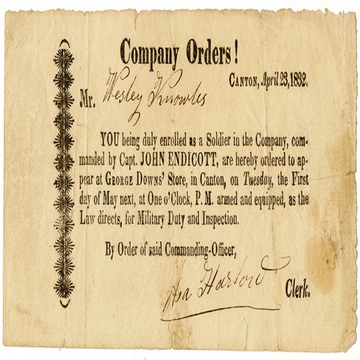 Company Orders!
CANTON, April 23, 1832.
Mr. Wesley Knowles
YOU being duly enrolled as a Soldier in the Company, com-
manded by Capt. JOHN ENDICOTT, are hereby ordered to ap-
pear at GEORGE DOWNS' Store, in Canton, on Tuesday, the First
day of May next, at One o'Clock, P. M. armed and equipped, as the
Law directs, for Military Duty and Inspection.
By Order of said Commanding-Officer,
Clerk.